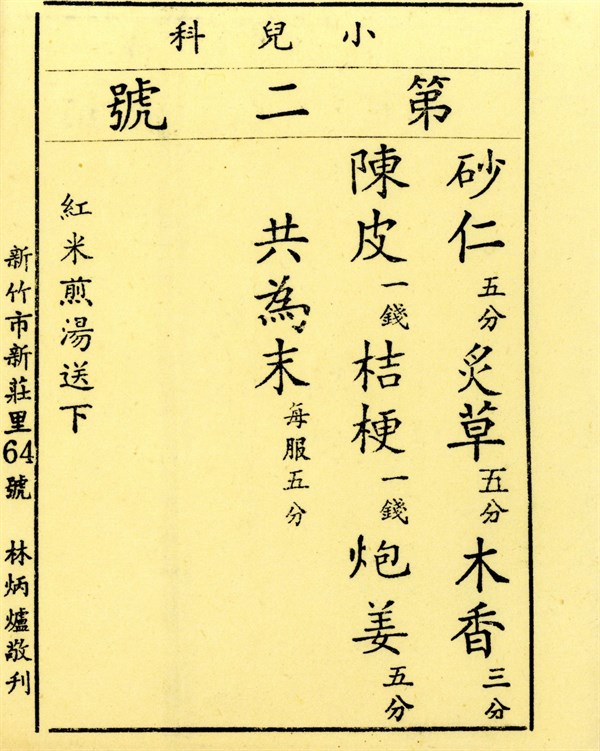 小兒科
第二號
砂仁五分炙草五分木香三分
陳皮一錢桔梗一錢炮姜五分
共為末每服五分
紅米煎湯送下
新竹市新莊里64號 林炳爐敬刊